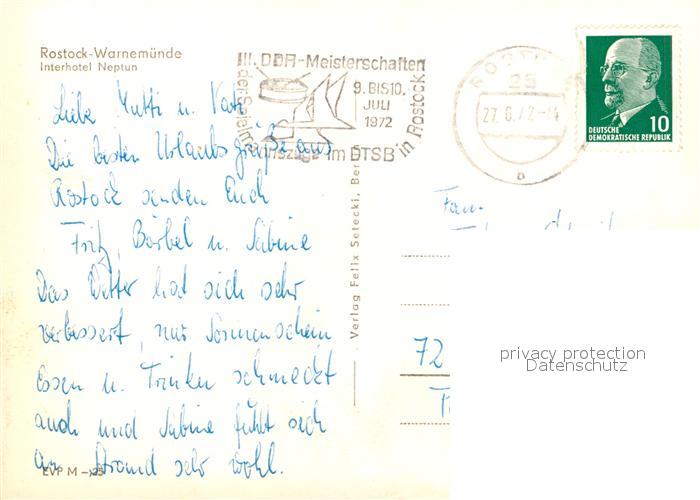 Rostock-Warnemünde
Interhotel Neptun
III. DDR-Meisterschaften
der Spielm
9. BIS 10.
JULI
1972
in Rostock
annszüge im DTSB
ROSTOCK
25
27.6.72-14
b
10
DEUTSCHE
DEMOKRATISCHE REPUBLIK
Liebe Mutti u. Vati
Die besten Urlaubsgrüße aus
Rostock senden Euch
Fritz, Bärbel u. Sabine
Das Wetter hat sich sehr
verbessert, nur Sonnenschein
Essen u. Trinken schmeckt
auch und Sabine fühlt sich
am Strand sehr wohl.
EVP M -,25
Verlag Felix Setecki, Berlin
Fam.
72
privacy protection
Datenschutz